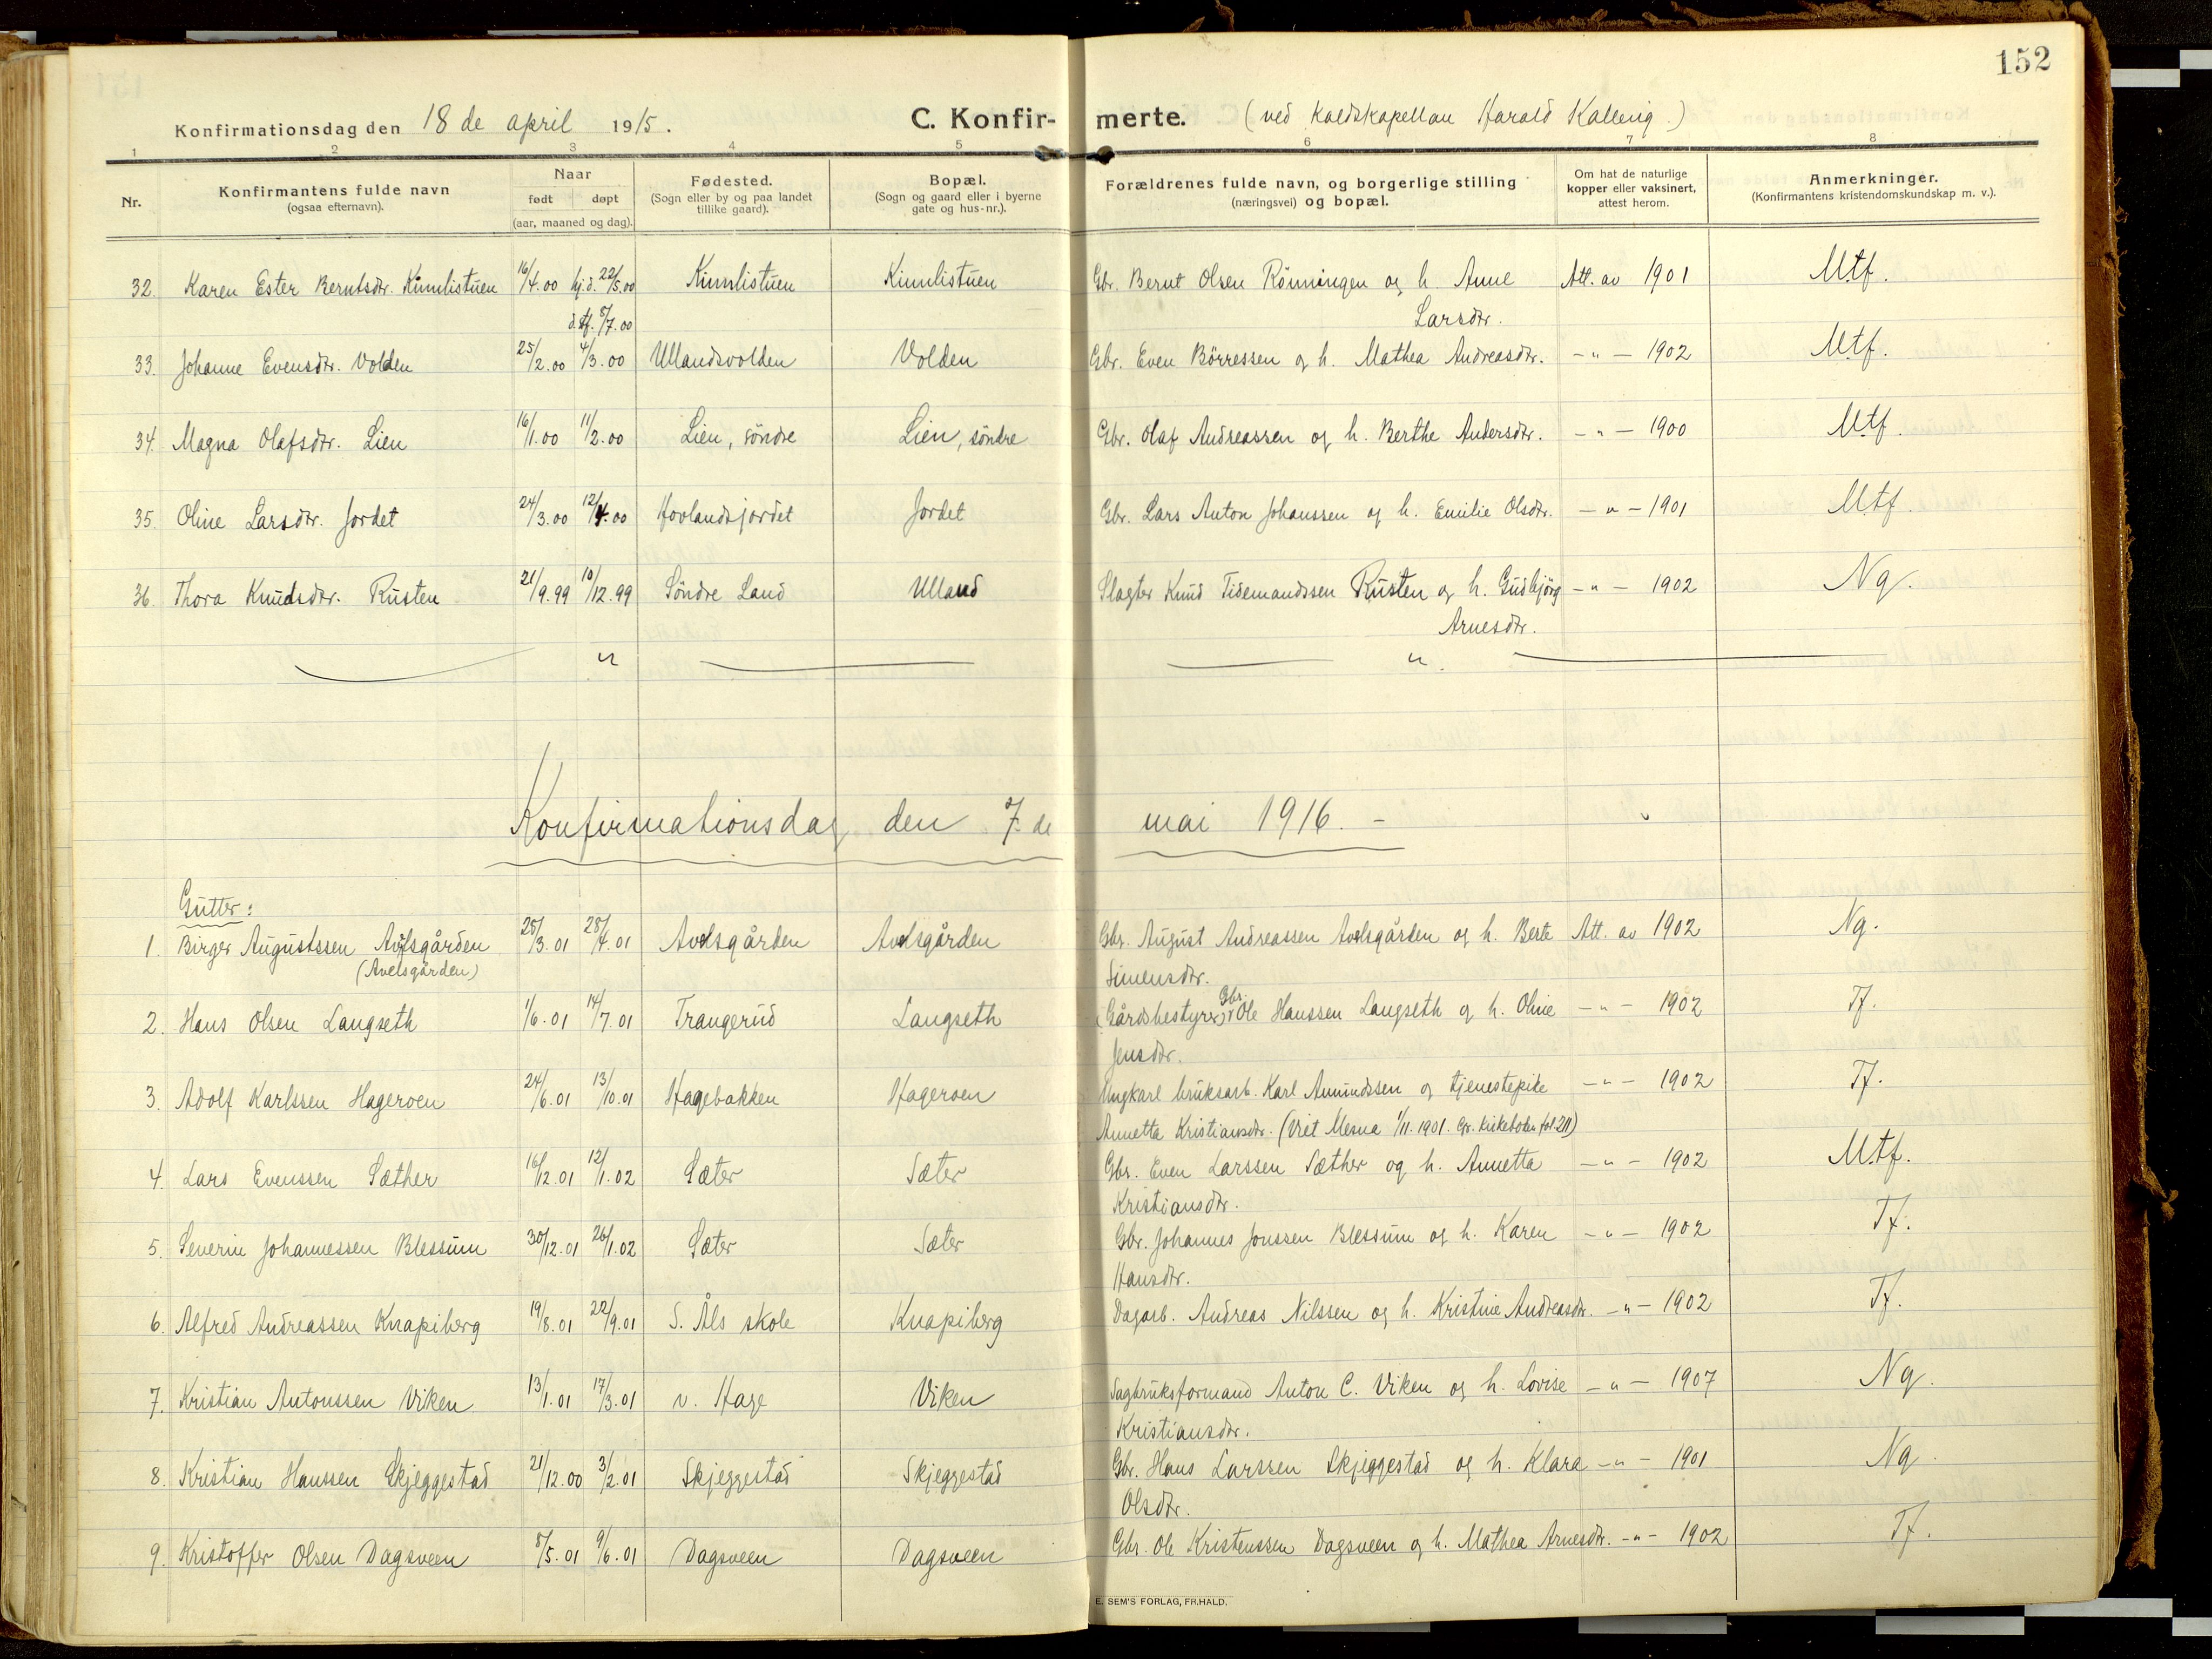 152
Konfirmationsdag den 18 de april 1915. C. Konfir- merte. (ved Kaldskapellan Harald Kallevig.)
1 2 3 4 5 6 7 8
Nr. Konfirmantens fulde navn (ogsaa efternavn). Naar født døpt (aar, maaned og dag). Fødested. (Sogn eller by og paa landet tillike gaard). Bopæl. (Sogn og gaard eller i byerne gate og hus-nr.). Forældrenes fulde navn, og borgerlige stilling (næringsvei) og bopæl. Om hat de naturlige kopper eller vaksinert, attest herom. Anmerkninger. (Konfirmantens kristendomskundskap m. v.).
32. Karen Ester Berntsdtr. Kinnlistuen 16/4.00 hj.d. 22/5.00 Kinnlistuen Kinnlistuen Gbr. Bernt Olsen Rönningen og h. Anne Att. av 1901 Mtf.
d. stf. 8/7.00 Larsdtr.
33. Johanne Evensdtr. Volden 25/2.00 4/3.00 Ullandsvolden Volden Gbr. Even Börressen og h. Mathea Andreasdtr. -"- 1902 Mtf.
34. Magna Olafsdtr. Lien 16/1.00 11/2.00 Lien, söndre Lien, söndre Gbr. Olaf Andreassen og h. Berthe Andersdtr. -"- 1900 Mtf.
35. Oline Larsdtr. Jordet 24/3.00 12/4.00 Hovlandsjordet Jordet Gbr. Lars Anton Johanssen og h. Emilie Olsdtr. -"- 1901 Mtf.
36. Thora Knudsdtr. Rusten 21/9.99 10/12.99 Söndre Land Ulland Slagter Knud Tidemandssen Rusten og h. Gudbjörg -"- 1902 Ng.
Arnesdtr.
" "
Konfirmationsdag den 7. de mai 1916. -
Gutter:
1. Birger Augustssen Avlsgården 25/3.01 28/4.01 Avelsgården Avelsgården Gbr. August Andreassen Avelsgården og h. Berte Att. av 1902 Ng.
(Avelsgården) Simensdtr.
2. Hans Olsen Langseth 1/6.01 14/7.01 Trangerud Langseth (Gårdsbestyrer) Gbr. Ole Hanssen Langseth og h. Oline -"- 1902 Tf.
Jensdtr.
3. Adolf Karlssen Hageroen 24/6.01 13/10.01 Hagebakken Hageroen Ungkarl bruksarb. Karl Amundssen og tjenestepike -"- 1902 Tf.
Annetta Kristiansdtr. (Viet Mesna 1/11.1901. Gr. kirkeboken fol 211)
4. Lars Evenssen Sæther 16/12.01 12/1.02 Sæter Sæter Gbr. Even Larssen Sæther og h. Annetta -"- 1902 Mtf.
Kristiansdtr.
5. Severin Johannessen Blessum 30/12.01 26/1.02 Sæter Sæter Gbr. Johannes Jonssen Blessum og h. Karen -"- 1902 Tf.
Hansdtr.
6. Alfred Andreassen Knapiberg 19/8.01 22/9.01 S. Åls skole Knapiberg Dagarb. Andreas Nilssen og h. Kristine Andreasdtr. -"- 1902 Tf.
7. Kristian Antonssen Viken 13/1.01 17/3.01 v. Hage Viken Sagbruksformand Anton C. Viken og h. Lovise -"- 1907 Ng.
Kristiansdtr.
8. Kristian Hanssen Skjeggestad 21/12.00 3/2.01 Skjeggestad Skjeggestad Gbr. Hans Larssen Skjeggestad og h. Klara -"- 1901 Ng.
Olsdtr.
9. Kristoffer Olsen Dagsveen 8/5.01 9/6.01 Dagsveen Dagsveen Gbr. Ole Kristenssen Dagsveen og h. Mathea Arnesdtr. -"- 1902 Tf.
E. SEM'S FORLAG, FR.HALD.